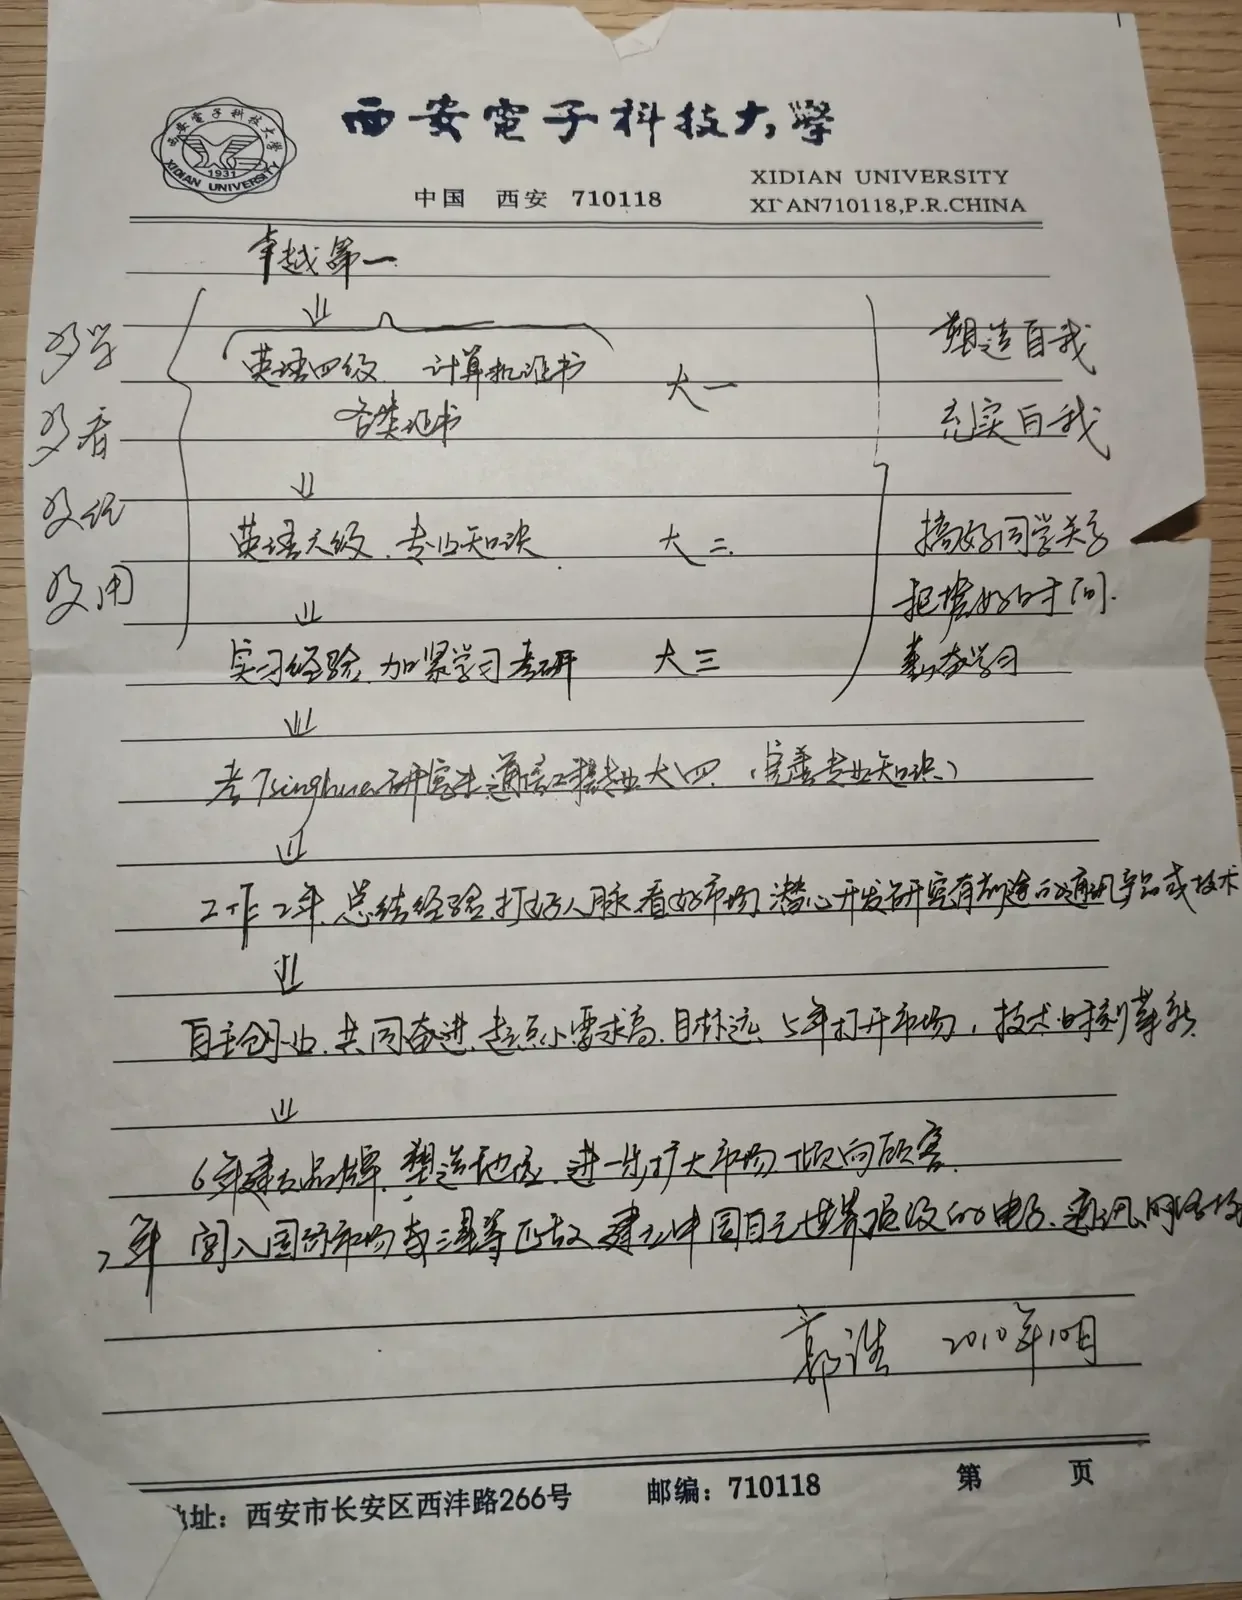 西安電子科技大學
西安電子科技大学
1931
XIDIAN UNIVERSITY
中国 西安 710118
XIDIAN UNIVERSITY
XI'AN710118,P.R.CHINA
卓越第一
英语四级 计算机证书
各类证书
大一
英语六级、专业知识
大二
实习经验、加紧学习考研
大三
多学
多看
多用
塑造自我
充实自我
搞好同学关系
把握好时间
学习
考Tsinghua研究生通信工程专业大四、(完善专业知识)
工作2年、总结经验、打好人脉看好市场、潜心开发研究有前途的通讯产品或技术
自主创业、共同奋进、起点小要求高、目标远、5年打开市场，技术时刻革新
6年建立品牌、塑造地位、进一步扩大市场倾向顾客
年 闯入国际市场与三星等匹敌、建立中国自己世界顶级的电子、通讯、网络
郭浩 2010年10月
地址：西安市长安区西沣路266号 邮编：710118 第 页